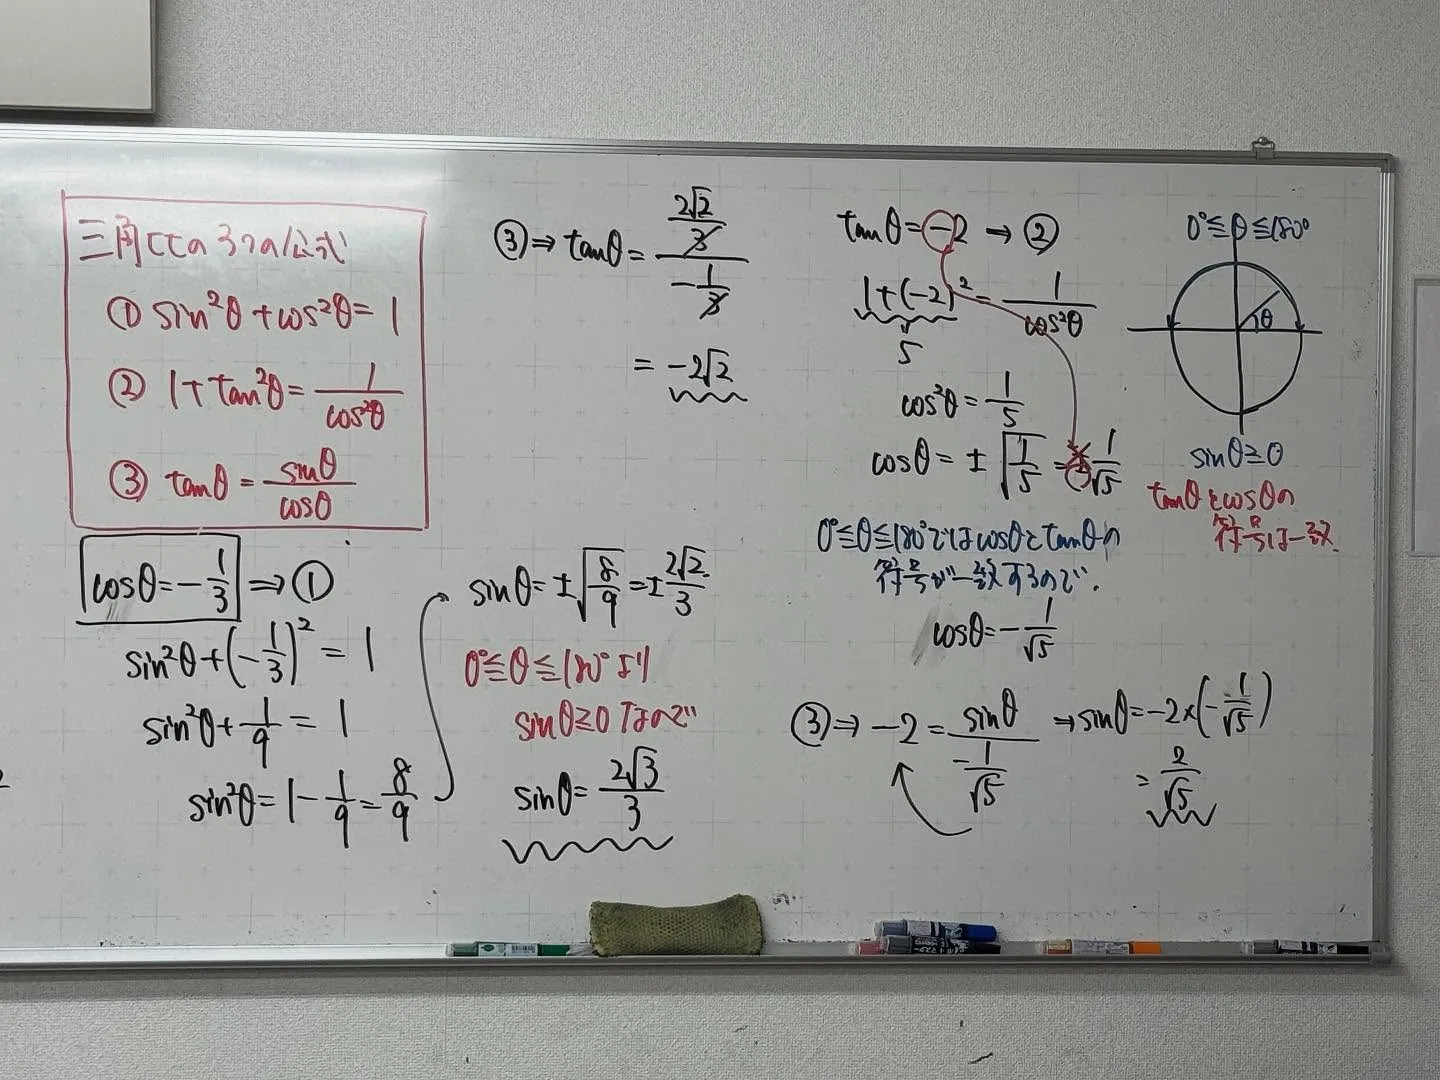 三角比の3つの公式
① sin²θ + cos²θ = 1
② 1 + tan²θ = 1/cos²θ
③ tanθ = sinθ/cosθ
cosθ = -1/3 ⇒ ①
sin²θ + (-1/3)² = 1
sin²θ + 1/9 = 1
sin²θ = 1 - 1/9 = 8/9
sinθ = ±√(8/9) = ±2√2/3
0°≦θ≦180°より
sinθ≧0なので
sinθ = 2√3/3
③ ⇒ tanθ = (2√2/3)/(-1/3)
= -2√2
tanθ = -2 → ②
1 + (-2)² = 1/cos²θ
5
cos²θ = 1/5
cosθ = ±√(1/5) = 1/√5
0°≦θ≦180°ではcosθとtanθの
符号が一致するので、
cosθ = -1/√5
③ ⇒ -2 = sinθ/(-1/√5) ⇒ sinθ = -2×(-1/√5)
= 2/√5
0°≦θ≦180°
θ
sinθ≧0
tanθとcosθの
符号は一致